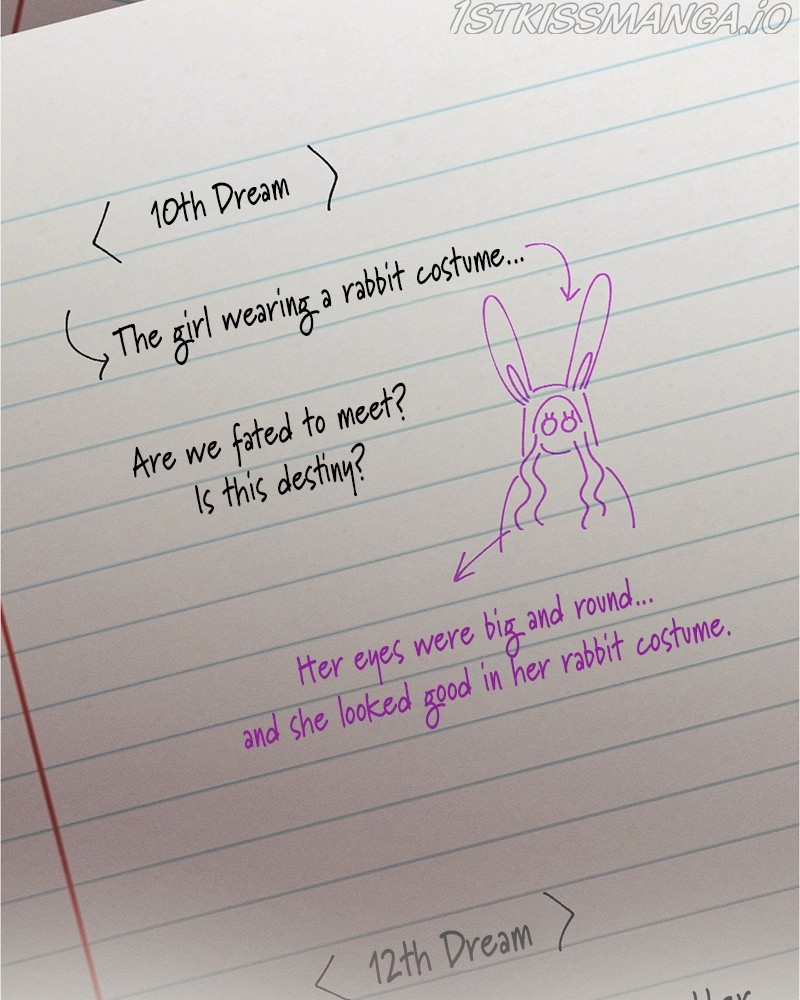 1STKISSMANGA.IO
< 10th Dream >
The girl wearing a rabbit costume...
Are we fated to meet?
Is this destiny?
Her eyes were big and round...
and she looked good in her rabbit costume.
< 12th Dream >